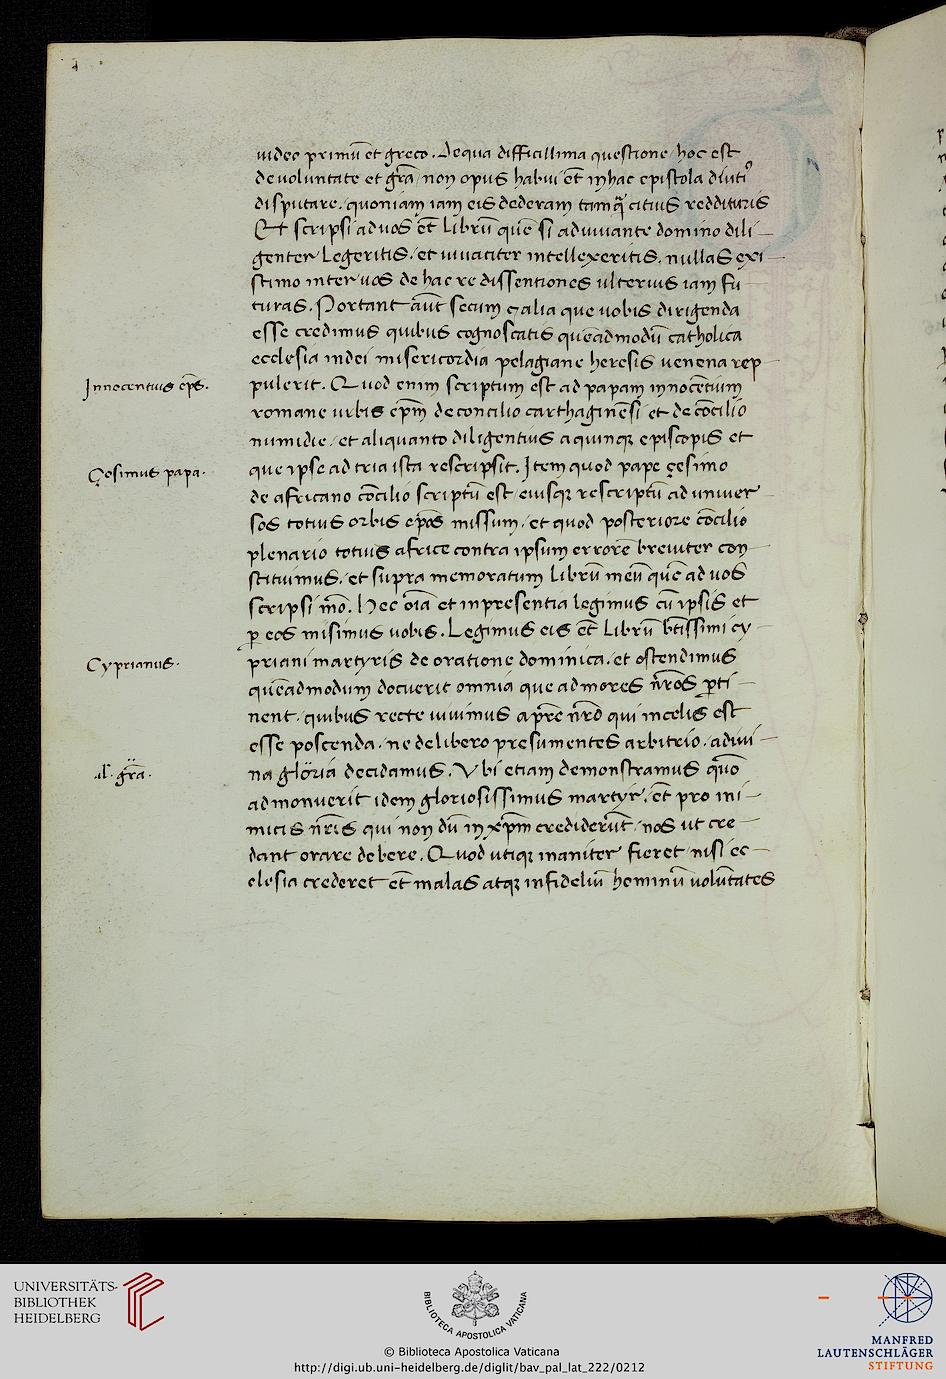 uideo primū et greco. De qua difficillima questione, hoc est
de uoluntate et grā, non opus habui ēt in hac epistola diuti᾿
disputare, quoniam iam eis dederam tamq̄ citius reddituris
Et scripsi ad uos ēt librū quē si adiuuante domino dili-
genter legeritis, et uiuaciter intellexeritis, nullas exi-
stimo inter uos de hac re dissentiones ulterius iam fu-
turas. Portant aūt secum ⁊ alia que uobis dirigenda
esse credimus quibus cognoscatis quēadmodū catholica
ecclesia in dei misericordia pelagiane heresis uenena rep-
Innocentius ep̄s.
pulerit. Quod enim scriptum est ad papam innocētium
romane urbis ep̄m de concilio carthaginēsi et de cōcilio
numidie, et aliquanto diligentius a quinqꝫ episcopis et
Çosimus papa.
que ipse ad tria ista rescripsit. Item quod pape çosimo
de africano cōcilio scriptū est, eiusqꝫ rescriptū ad uniuer-
sos totius orbis ep̄os missum, et quod posteriore cōcilio
plenario totius africe contra ipsum errorē breuiter con-
stituimus, et supra memoratum librū meū quē ad uos
scripsi mō. Hec oīa et in presentia legimus cū ipsis et
ꝑ eos misimus uobis. Legimus eis ēt librū bt̄issimi cy-
Cyprianus.
priani martyris de oratione dominica, et ostendimus
quēadmodum docuerit omnia que ad mores nr̄os ꝑti-
nent, quibus recte uiuimus a pr̄e nr̄o qui in celis est
esse poscenda, ne de libero presumentes arbitrio, a diui-
al. grā.
na gloria decidamus. Vbi etiam demonstramus quō
admonuerit idem gloriosissimus martyr, ēt pro ini-
micis nr̄is qui non dū in xp̄m crediderūt, nos ut cre-
dant orare debere. Quod utiqꝫ inaniter fieret, nisi ec-
clesia crederet ēt malas atqꝫ infideliū hominū uolūtates
UNIVERSITÄTS-
BIBLIOTHEK
HEIDELBERG
BIBLIOTECA APOSTOLICA VATICANA
© Biblioteca Apostolica Vaticana
http://digi.ub.uni-heidelberg.de/diglit/bav_pal_lat_222/0212
MANFRED
LAUTENSCHLÄGER
STIFTUNG